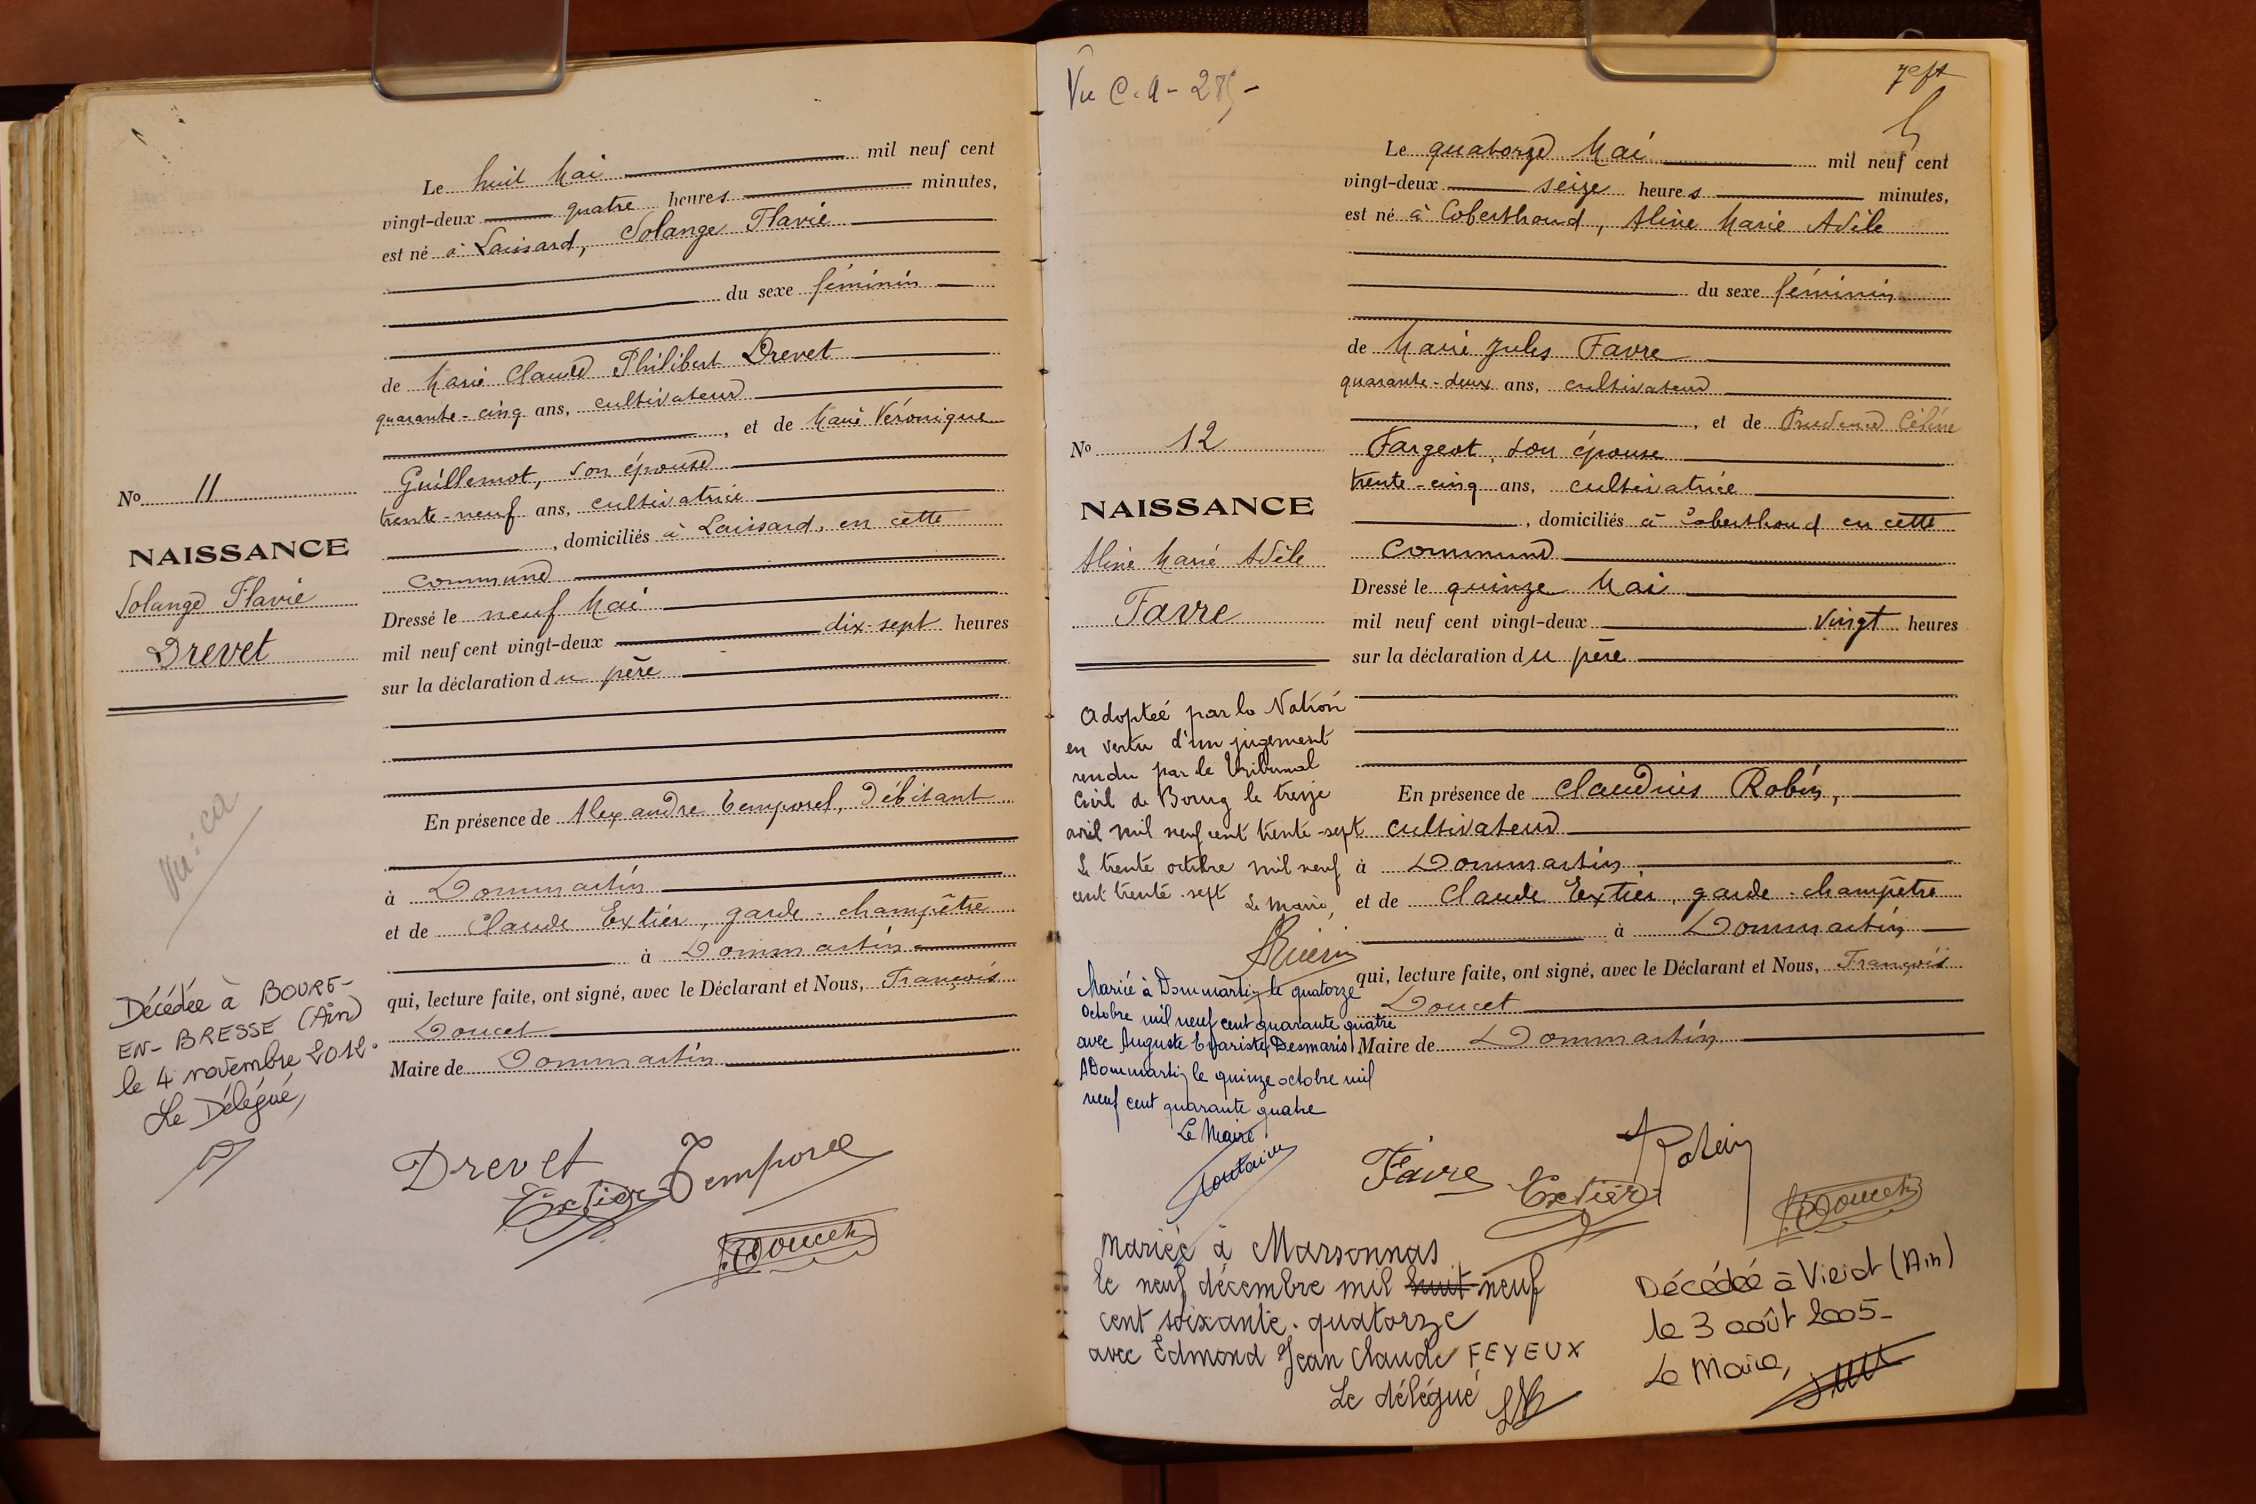 Le huit Mai mil neuf cent
vingt-deux quatre heures minutes,
est né à Laissard, Solange Flavie
du sexe féminin
de Marie Claude Philibert Drevet
quarante-cinq ans, cultivateur
, et de Marie Véronique
Guillemot, son épouse
trente-neuf ans, cultivatrice
, domiciliés à Laissard, en cette
commune
Dressé le neuf Mai
mil neuf cent vingt-deux dix-sept heures
sur la déclaration du père
En présence de Alexandre Temporel, débitant
à Dommartin
et de Claude Extier, garde-champêtre
à Dommartin
qui, lecture faite, ont signé, avec le Déclarant et Nous, François
Doucet
Maire de Dommartin
Drevet
Extier Temporel
Doucet
No 11
NAISSANCE
Solange Flavie
Drevet
Vu:
Décédée à BOURG-
EN-BRESSE (Ain)
le 4 novembre 2012.
Le Délégué,
Vu C.A - 285 -
7eft
Le quatorze Mai mil neuf cent
vingt-deux seize heures minutes,
est né à Coberthoud, Aline Marie Adèle
du sexe féminin
de Marie Jules Favre
quarante-deux ans, cultivateur
, et de Prudence Céline
Fargeot, son épouse
trente-cinq ans, cultivatrice
, domiciliés à Coberthoud en cette
commune
Dressé le quinze Mai
mil neuf cent vingt-deux vingt heures
sur la déclaration du père
En présence de Claudius Robin,
cultivateur
à Dommartin
et de Claude Extier, garde-champêtre
à Dommartin
qui, lecture faite, ont signé, avec le Déclarant et Nous, François
Doucet
Maire de Dommartin
Favre Extier Robin
Doucet
No 12
NAISSANCE
Aline Marie Adèle
Favre
Adoptée par la Nation
en vertu d'un jugement
rendu par le Tribunal
Civil de Bourg le treize
avril mil neuf cent trente-sept
Le trente octobre mil neuf
cent trente-sept Le Maire,
Mariée à Dommartin le quatorze
Octobre mil neuf cent quarante quatre
avec Auguste Evariste Desmaris
A Dommartin le quinze octobre mil
neuf cent quarante quatre
Le Maire
mariée à Marsonnas
le neuf décembre mil huit neuf
cent soixante-quatorze
avec Edmond Jean Claude FEYEUX
Le délégué
Décédée à Viriat (Ain)
le 3 août 2005-
Le Maire,